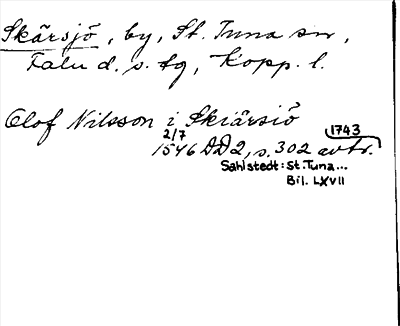 Skärsjö, by, St. Tuna sn,
Falu d. s. tg, Kopp. l.
Olof Nilsson i Skiärsiö
2/7 1743
1546 DD2, s. 302 avtr.
Sahlstedt: St. Tuna...
Bil. LXVII